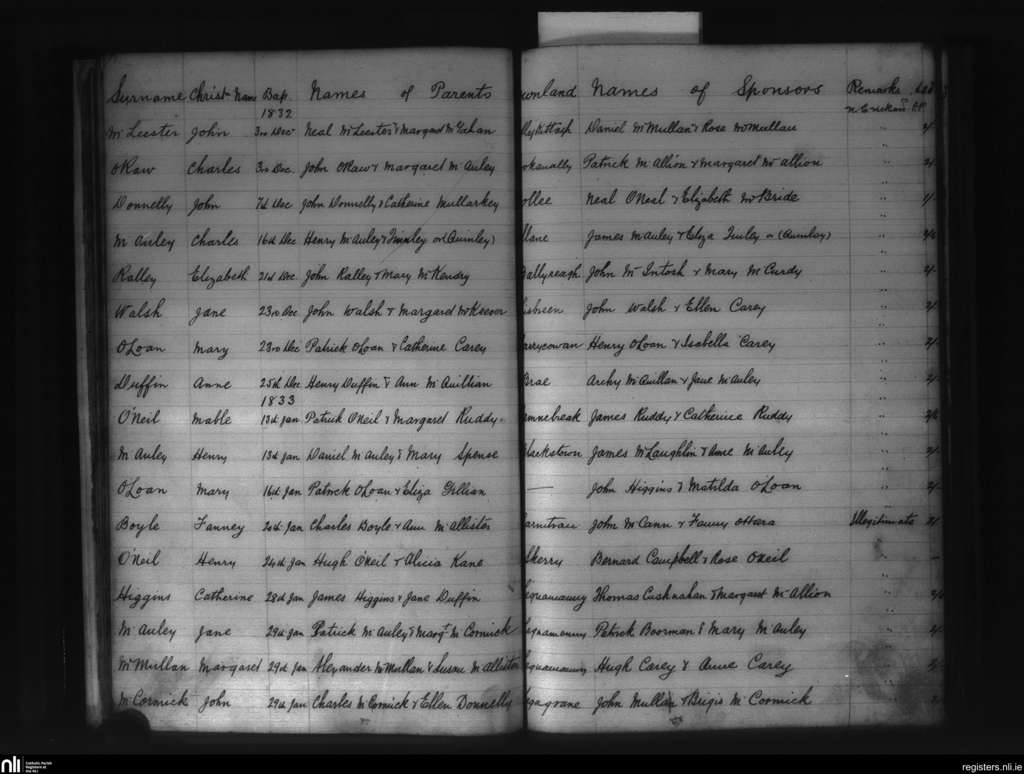 Surname Christ Nam Bap. Names of Parents wnland Names of Sponsors Remarks
1832 P.P.
McLeester John 3rd Decr Neal McLeester & Margaret McGahan Daniel McMullan & Rose McMullan " 2/-
O'Raw Charles 3rd Dec. John O'Raw & Margaret McAuley Patrick McAllion & Margaret McAllion " 2/-
Donnelly John 7th Dec John Donnelly & Catherine Mullarkey ollee Neal O'Neal & Elizabeth McBride " 1/-
McAuley Charles 16th Dec Henry McAuley & Finnley or (Quinley) llane James McAuley & Eliza Finley or (Quinley) "
Kalley Elizabeth 21st Dec. John Kalley & Mary McKendry allyreagh John McIntosh & Mary McCurdy " 2/-
Walsh Jane 23rd Dec. John Walsh & Margaret McKeever isheen John Walsh & Ellen Carey " 2/-
O'Loan Mary 23rd Dec Patrick O'Loan & Catherine Carey arrycowan Henry O'Loan & Isabella Carey " 2/-
Duffin Anne 25th Dec. Henry Duffin & Ann McQuillian Brae Archy McQuillan & Jane McAuley " 2/-
1833
O'Neil Mable 13th Jan Patrick O'Neil & Margaret Ruddy mnebreak James Ruddy & Catherine Ruddy " 2/6
McAuley Henry 13th Jan Daniel McAuley & Mary Spence larkstown James McLaughlin & Anne McAulty " 2/-
O'Loan Mary 16th Jan Patrick O'Loan & Eliza Gillian — John Higgins & Matilda O'Loan " 2/-
Boyle Fanney 20th Jan Charles Boyle & Ann McAllister John McCann & Fanny O'Hara Illegitimate 2/-
O'Neil Henry 24th Jan Hugh O'Neil & Alicia Kane Skerry Bernard Campbell & Rose O'Neil " —
Higgins Catherine 28th Jan James Higgins & Jane Duffin egnamanny Thomas Cushnahan & Margaret McAllion "
McAuley Jane 29th Jan Patrick McAuley & Margt McCormick egnamanny Patrick Boorman & Mary McAuley " 2/-
McMullan Margaret 29th Jan Alexander McMullan & Susan McAllister egnamanny Hugh Carey & Anne Carey "
McCormick John 29th Jan Charles McCormick & Ellen Donnelly egagrane John Mullan & Brigis McCormick "
nli Catholic Parish Registers at the NLI
registers.nli.ie